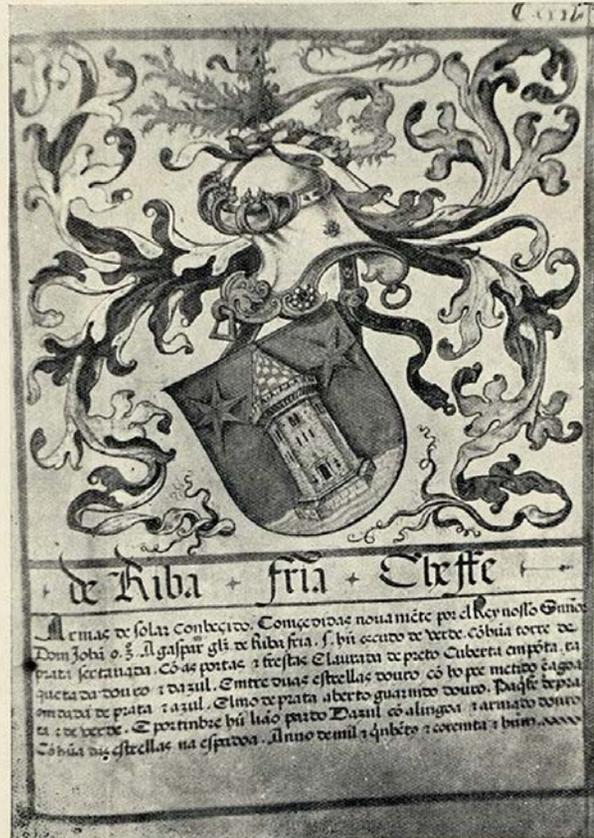 de Riba fria Cheffe
Armas de solar Conheçido. Comçedidas novamẽte por el Rey nosso Sñnor
Dom Johã o. 3. A gaspar glz de Riba fria. s. hũ escudo de verde. Cõ hũa torre de
prata sextauada. Cõ as portas ⁊ frestas ⁊ laurada de preto Cuberta em põta.
quetada douro ⁊ dazul. Emtre duas estrellas douro cõ ho pee metido ẽ agoa
omdada de prata ⁊ azul. Elmo de prata aberto guarnido douro. Paqfe de pra
ta ⁊ de verde. E por timbre hũ lião pardo Dazul cõ a lingoa ⁊ armado douro
Cõ hũa das estrellas na espadoa. Anno de mil ⁊ qinhẽtos ⁊ coremta ⁊ hum.